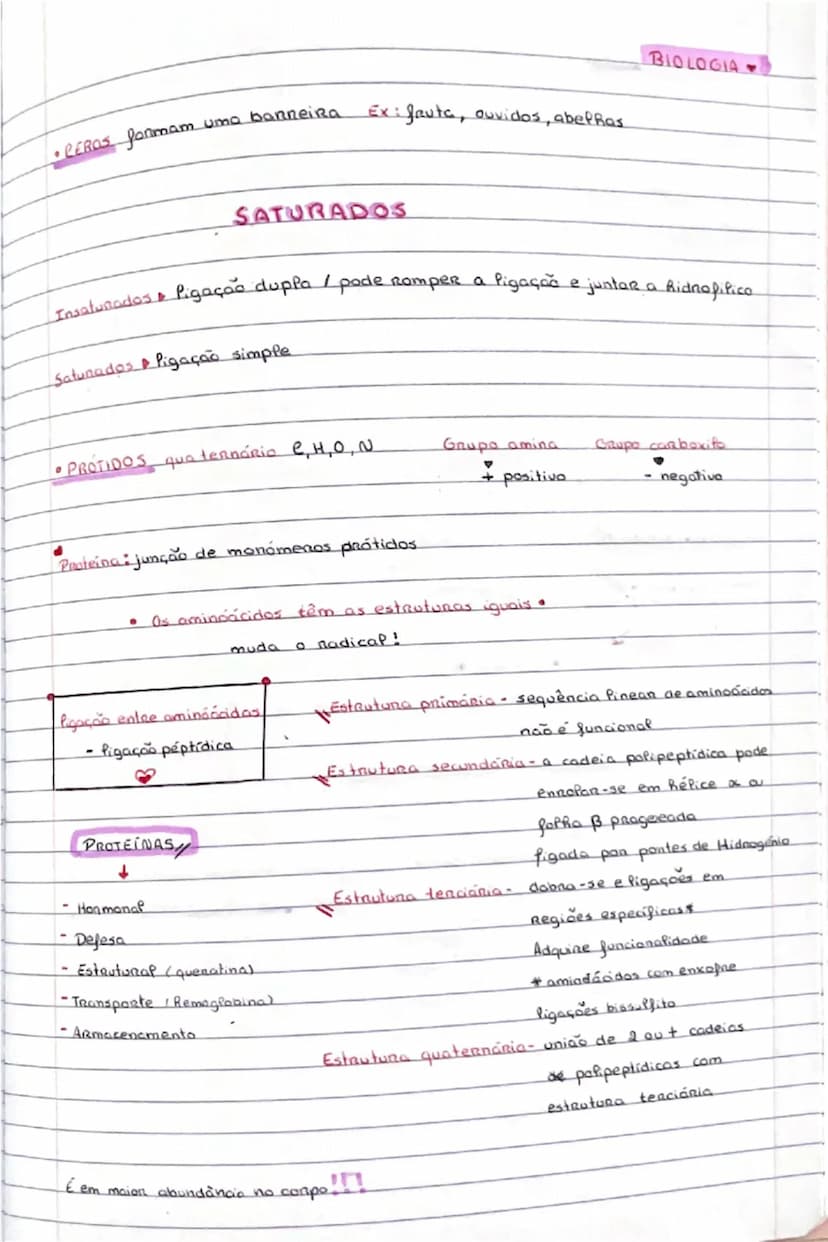 BIOLOGIA
• CERAS formam uma barreira Ex: fruta, ouvidos, abelhas
SATURADOS
Insaturados ligação dupla / pode romper a ligação e juntar a hidrofílico
Saturados ligação simple
• PRÓTIDOS quaternário C, H, O, N Grupo amina Grupo carboxilo
+ positivo - negativo
Proteína: junção de monómeros prótidos
• Os aminoácidos têm as estruturas iguais •
muda o radical!
ligação entre aminoácidos
- ligação péptídica
Estrutura primária - sequência linear de aminoácidos
não é funcional
Estrutura secundária - a cadeia polipeptídica pode
enrolar-se em hélice α ou
folha β pragereada
ligada por pontes de Hidrogénio
PROTEÍNAS
↓
- Hormonal
- Defesa
- Estrutural (queratina)
- Transporte (Hemoglobina)
- Armazenamento
Estrutura terciária - dobra-se e ligações em
Regiões específicas*
Adquire funcionalidade
* aminoácidos com enxofre
ligações bissulfito
Estrutura quaternária - união de 2 ou + cadeias
de polipeptídicas com
estrutura terciária
É em maior abundância no corpo!!!